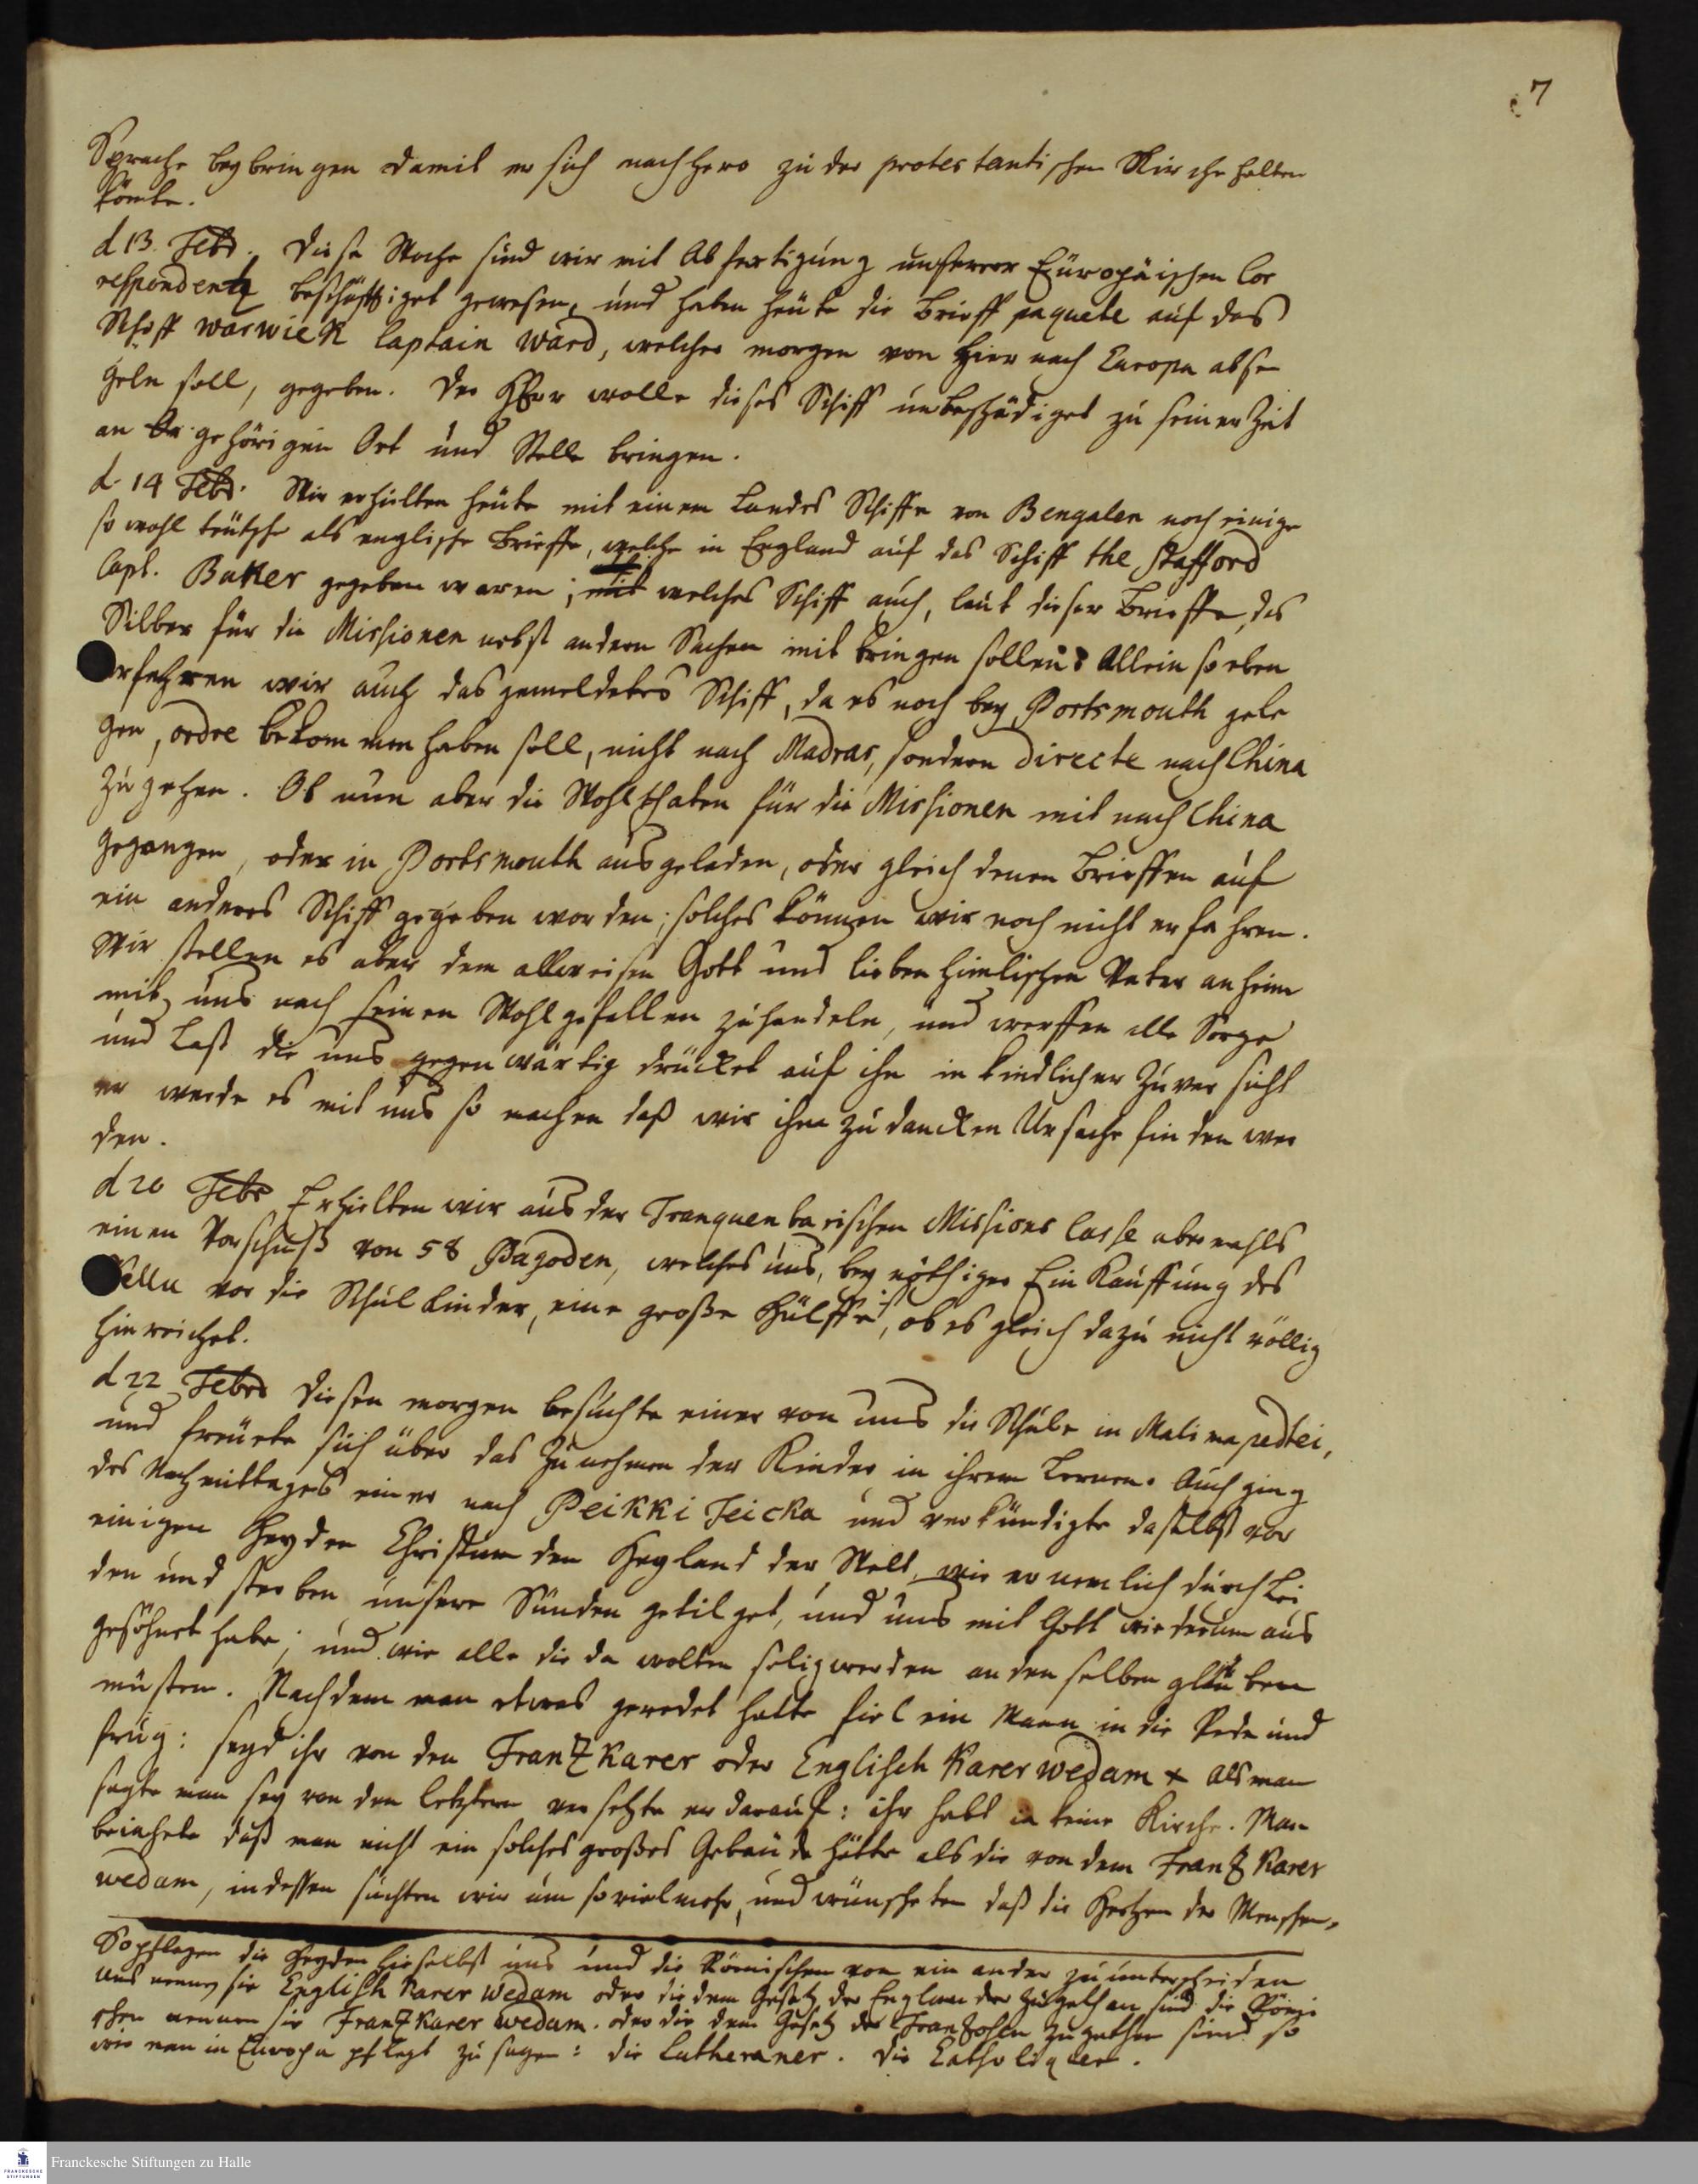 7
Sprache beybringen damit er sich nachhero zu der protestantischen Kirche halten
könte.
d 13. Febr. Diese Woche sind wir mit Abfertigung unserer Europäischen Cor
respondentz beschäfftiget gewesen, und haben heute die Brieff paquete auf das
Schiff warwick Captain ward, welches morgen von hier nach Europa abse
geln soll, gegeben. Der HErr wolle dieses Schiff unbeschädiget zu seiner Zeit
an gehörigen Ort und Stelle bringen.
d. 14 Febr. Wir erhielten heute mit einem Landes Schiffe von Bengalen noch einige
so wohl teutsche als englische Brieffe, welche in England auf das Schiff the Stafford
Capt. Baker gegeben waren; mit welches Schiff auch, laut dieser Brieffe, das
Silber für die Missionen nebst andern Sachen mit bringen sollen: Allein so eben
erfahren wir auch das gemeldetes Schiff, da es noch bey Portsmouth gele
gen, ordre bekommen haben soll, nicht nach Madras, sondern directe nach China
zu gehen. Ob nun aber die Wohlthaten für die Missionen mit nach China
gegangen, oder in Portsmouth ausgeladen, oder gleich denen Brieffen auf
ein anderes Schiff gegeben worden; solches können wir noch nicht erfahren.
Wir stellen es aber dem allweisen Gott und lieben himlischen Vater anheim
mit uns nach seinen Wohlgefallen zu handeln, und werffen alle Sorge
und Last die uns gegenwärtig drücket auf ihn in kindlicher Zuversicht
er werde es mit uns so machen daß wir ihm zu dancken Ursache finden wer
den.
d 20 Febr Erhielten wir aus der Tranquenbarischen Missions Casse abermahls
einen Vorschuß von 58 Pagoden, welches uns, bey nöthiger Ein Kauffung des
Nellu vor die Schulkinder, eine große Hülffe ist, ob es gleich dazu nicht völlig
hinreichet.
d 22 Febr Diesen morgen besuchte einer von uns die Schule in Malimapedtei,
und freuete sich über das Zunehmen der Kinder in ihrem Lernen. Auch ging
des Nachmittages einer nach Peikki Teicka und verkündigte daselbst vor
einigen Heyden Christum den Heyland der Welt, wie er nemlich durch Lei
den und sterben unsere Sünden getilget, und uns mit Gott wiederum aus
gesöhnet habe; und wie alle die da wolten selig werden an denselben glauben
müsten. Nachdem man etwas geredet hatte fiel ein Mann in die Rede und
frug: seyd ihr von den Frantzkarer oder Englisch Karer wedam + als man
sagte man sey von den letztern versetzte er darauf: ihr habt ja keine Kirche. Man
bejahete daß man nicht ein solches großes Gebäude hätte als die von dem Frantz Karer
wedam, indessen suchten wir um so vielmehr, und wünscheten daß die Hertzen der Menschen,
So pflegen die Heyden hieselbst uns und die Römischen von ein ander zu unterscheiden
uns nennen sie Englisch Karer Wedam oder die dem Gesetz der Englander zugethan sind die Römi
schen nennen sie Frantzkarer wedam. oder die dem Gesetz der Frantzosen zugethan sind. so
wie man in Europa pflegt zu sagen: die Lutheraner. die Catholiquen.
Franckesche Stiftungen zu Halle